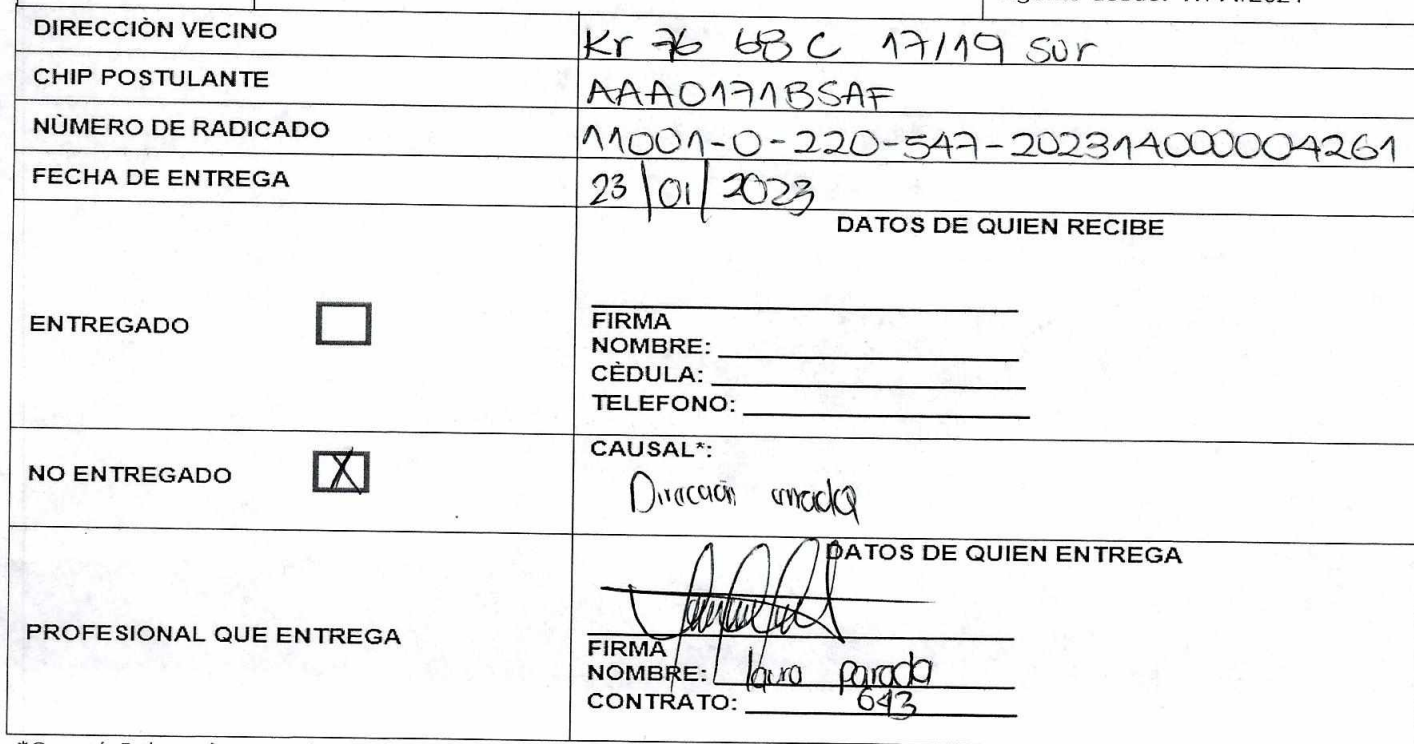 DIRECCIÒN VECINO Kr 76 68 C 17/19 sur
CHIP POSTULANTE AAA0171BSAF
NÙMERO DE RADICADO 11001-0-220-547-202314000004261
FECHA DE ENTREGA 23/01/2023
DATOS DE QUIEN RECIBE
ENTREGADO
FIRMA
NOMBRE:
CÈDULA:
TELEFONO:
NO ENTREGADO X
CAUSAL*:
Dirección errada
DATOS DE QUIEN ENTREGA
PROFESIONAL QUE ENTREGA
FIRMA
NOMBRE: laura parada
CONTRATO: 643